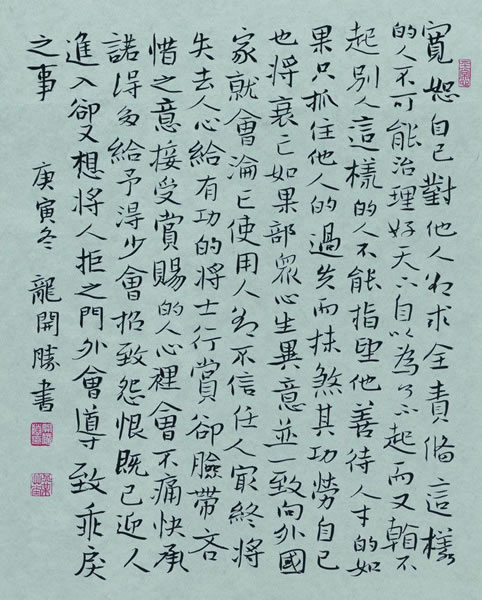 寬恕自己對他人卻求全責備這樣
的人不可能治理好天下自以為了不起而又瞧不
起別人這樣的人不能指望他善待人才的如
果只抓住他人的過失而抹煞其功勞自己
也將衰亡如果部眾心生異意並一致向外國
家就會淪亡使用人卻不信任人最終將
失去人心給有功的將士行賞卻臉帶吝
惜之意接受賞賜的人心裡會不痛快承
諾得多給予得少會招致怨恨既已迎人
進入卻又想將人拒之門外會導致乖戾
之事 庚寅冬 龍開勝書